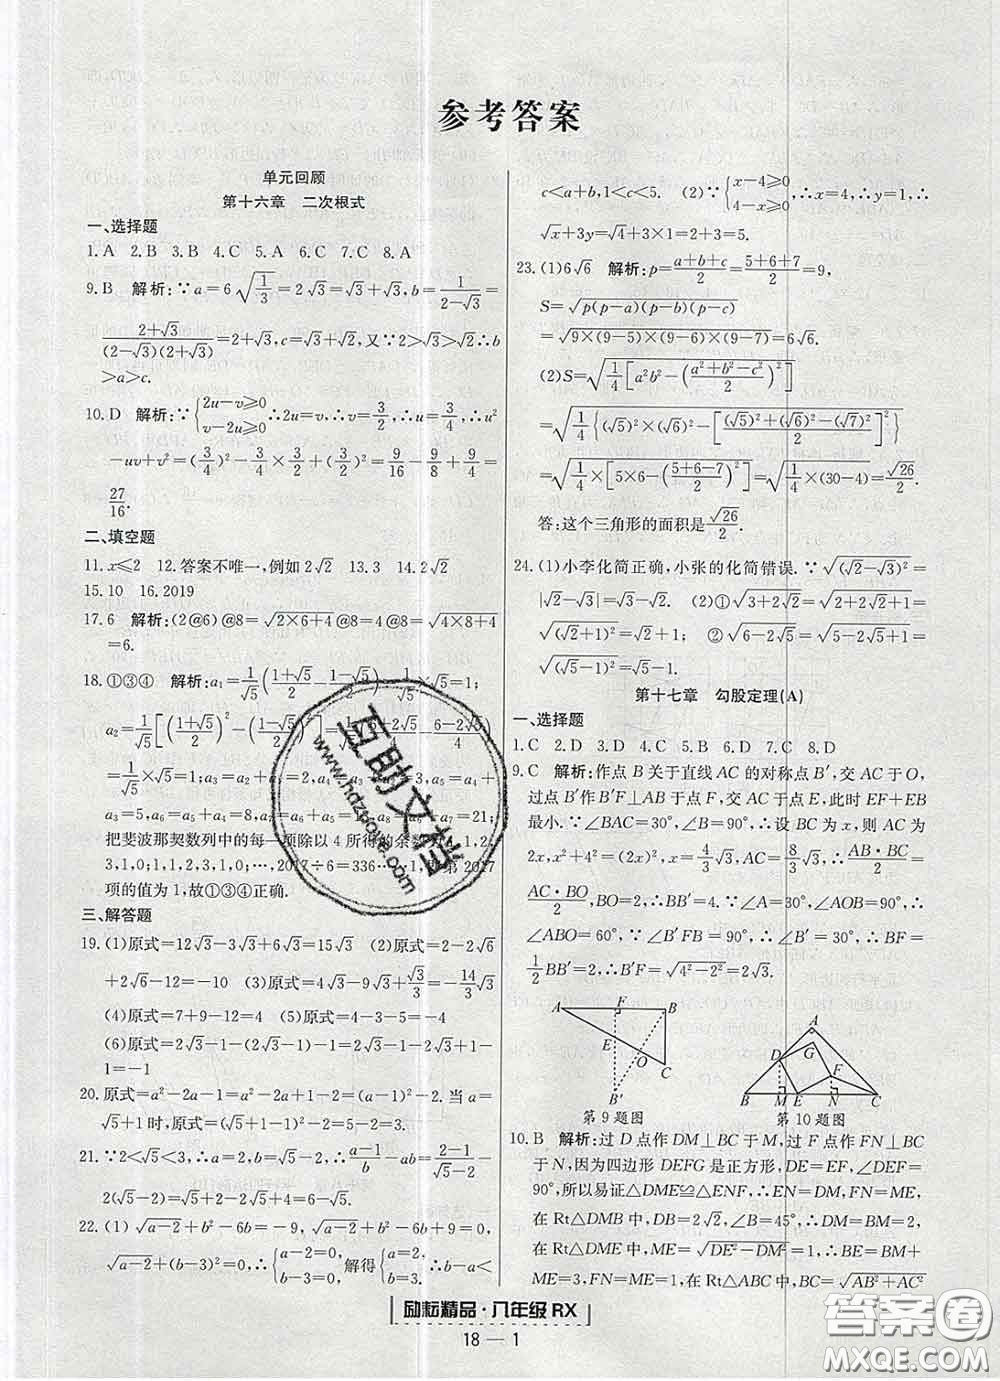 参考答案
单元回顾
第十六章 二次根式
一、选择题
1.A 2.B 3.B 4.C 5.A 6.C 7.C 8.A
9.B 解析:∵a=6√(1/3)=2√3=√3+√3,b=1/(2-√3)=
(2+√3)/((2-√3)(2+√3))=2+√3,c=√3+√2,又∵2>√3>√2∴b
>a>c.
10.D 解析:∵{2u-v≥0 v-2u≥0∴2u=v,∴v=3/2,∴u=3/4,∴u²
-uv+v²=(3/4)²-3/4×3/2+(3/2)²=9/16-9/8+9/4=
27/16.
二、填空题
11.x≤2 12.答案不唯一,例如2√2 13.3 14.2√2
15.10 16.2019
17.6 解析:(2@6)@8=√(2×6+4)@8=4@8=√(4×8+4)
=6.
18.①③④ 解析:a₁=1/√5((1+√5)/2-(1-√5)/2)=1/√5×√5=1;
a₂=1/√5[((1+√5)/2)²-((1-√5)/2)²]=1/√5
=1/√5×√5=1;a₃=a₁+a₂=2,a₄=
a₃=5,a₆=a₅+a₄=8,
把斐波那契数列中的每一项除以4所得的余数
3,1,0;1,1,2,3,1,0;…,2017÷6=336
项的值为1,故①③④正确.
三、解答题
19.(1)原式=12√3-3√3+6√3=15√3 (2)原式=2-2√6
+2√6-12=-10 (3)原式=2√3-4√3-3√3+√3/3=-14/3√3
(4)原式=7+9-12=4 (5)原式=4-3-5=-4
(6)原式=2√3-1-(2√3-1)-1=2√3-1-2√3+1-
1=-1
20.原式=a²-2a-1-a²-2a+1+a²+4a=(a²-1)-2.当
a=√5+1时,原式=(√5+1-1)²-2=5-2=3.
21.∵2<√5<3,∴a=2,b=√5-2.∴(a-1)/b-ab=(2-1)/(√5-2)-
2(√5-2)=√5+2-2√5+4=-√5+6.
22.(1)√(a-2)+b²-6b=-9,√(a-2)+b²-6b+9=0,
√(a-2)+(b-3)²=0∴{a-2=0 b-3=0,解得{a=2, b=3,∴b-a<
c<a+b,1<c<5. (2)∵{x-4≥0 4-x≥0,∴x=4,∴y=1,∴
√(x+3y)=√(4+3×1)=2+3=5.
23.(1)6√6 解析:p=(a+b+c)/2=(5+6+7)/2=9,
S=√(p(p-a)(p-b)(p-c))
=√(9×(9-5)×(9-6)×(9-7))=6√6.
(2)S=√(1/4[a²b²-((a²+b²-c²)/2)²])
=√(1/4{(√5)²×(√6)²-[((√5)²+(√6)²-(√7)²)/2]²})
=√(1/4×[5×6-((5+6-7)/2)²])=√(1/4×(30-4))=√26/2.
答:这个三角形的面积是√26/2.
24.(1)小李化简正确,小张的化简错误.∵√((√2-√3)²)=
|√2-√3|=√3-√2. (2)①√(3+2√2)=√(2+2√2+1)=
√((√2+1)²)=√2+1; ②√(6-2√5)=√(5-2√5+1)=
√((√5-1)²)=√5-1.
第十七章 勾股定理(A)
一、选择题
1.C 2.D 3.D 4.C 5.B 6.D 7.C 8.D
9.C 解析:作点B关于直线AC的对称点B′,交AC于O,
过点B′作B′F⊥AB于点F,交AC于点E,此时EF+EB
最小.∵∠BAC=30°,∠B=90°,∴设BC为x,则AC为
2x,x²+4²=(2x)²,x=4/3√3,AC=8/3√3,∴(AB·BC)/2=
(AC·BO)/2,BO=2,∴BB′=4.∵∠A=30°,∠B=90°,
∴∠ABO=60°,∵∠B′FB=90°,∴∠B′=30°,∴BF=
1/2BB′=2.在Rt△B′FB中,B′F=√(4²-2²)=2√3.
A F B
E O
C
B′
第9题图
A
D G
F
B M E N C
第10题图
10.B 解析:过D点作DM⊥BC于M,过F点作FN⊥BC
于N,因为四边形DEFG是正方形,DE=EF,∠DEF=
90°,所以易证△DME≌△ENF,∴DM=EN,FN=ME,
在Rt△DMB中,DB=2√2,∠B=45°,∴DM=BM=2,
在Rt△DME中,ME=√(DE²-DM²)=1,∴BE=BM+
ME=3,∴FN=ME=1,在Rt△ABC中,BC=√(AB²+AC²)
励耘精品·八年级RX
18—1
互助文档
www.hdzpole.com
答案圈
MXQE.COM